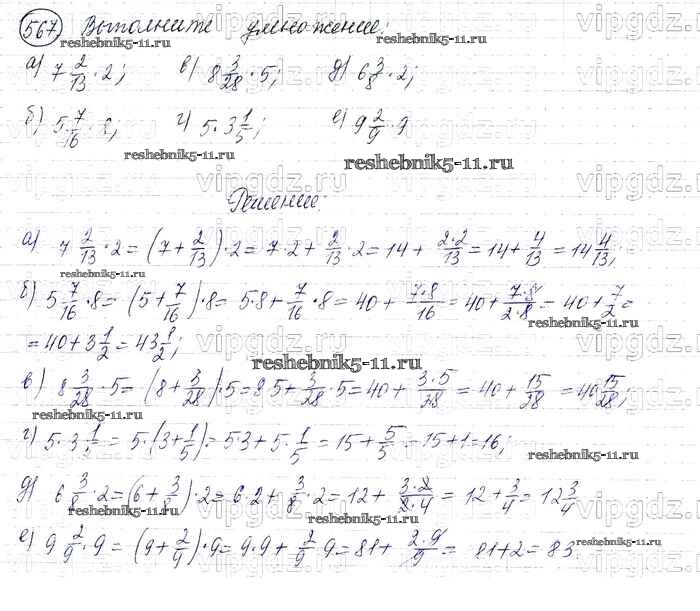 567 Выполните умножение:
reshebnik5-11.ru reshebnik5-11.ru
а) 7 2/13 · 2; в) 8 3/28 · 5; д) 6 3/8 · 2;
б) 5 7/16 · 8; г) 5 · 3 1/5; е) 9 2/9 · 9
reshebnik5-11.ru reshebnik5-11.ru
vipgdz.ru
Решение:
а) 7 2/13 · 2 = (7 + 2/13) · 2 = 7 · 2 + 2/13 · 2 = 14 + 2·2/13 = 14 + 4/13 = 14 4/13;
reshebnik5-11.ru
б) 5 7/16 · 8 = (5 + 7/16) · 8 = 5·8 + 7/16 · 8 = 40 + 7·8/16 = 40 + 7·8/2·8 = 40 + 7/2 =
reshebnik5-11.ru
= 40 + 3 1/2 = 43 1/2;
reshebnik5-11.ru
в) 8 3/28 · 5 = (8 + 3/28) · 5 = 8·5 + 3/28 · 5 = 40 + 3·5/28 = 40 + 15/28 = 40 15/28;
reshebnik5-11.ru
г) 5 · 3 1/5 = 5 · (3 + 1/5) = 5·3 + 5 · 1/5 = 15 + 5/5 = 15 + 1 = 16;
reshebnik5-11.ru
д) 6 3/8 · 2 = (6 + 3/8) · 2 = 6·2 + 3/8 · 2 = 12 + 3·2/2·4 = 12 + 3/4 = 12 3/4
reshebnik5-11.ru reshebnik5-11.ru
е) 9 2/9 · 9 = (9 + 2/9) · 9 = 9·9 + 2/9 · 9 = 81 + 2·9/9 = 81 + 2 = 83
reshebnik5-11.ru